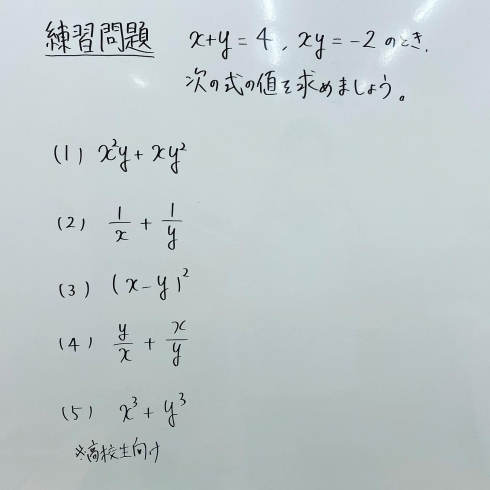 練習問題 x+y=4, xy=-2のとき,
次の式の値を求めましょう。
(1) x²y+xy²
(2) 1/x + 1/y
(3) (x-y)²
(4) y/x + x/y
(5) x³+y³
※高校生向け